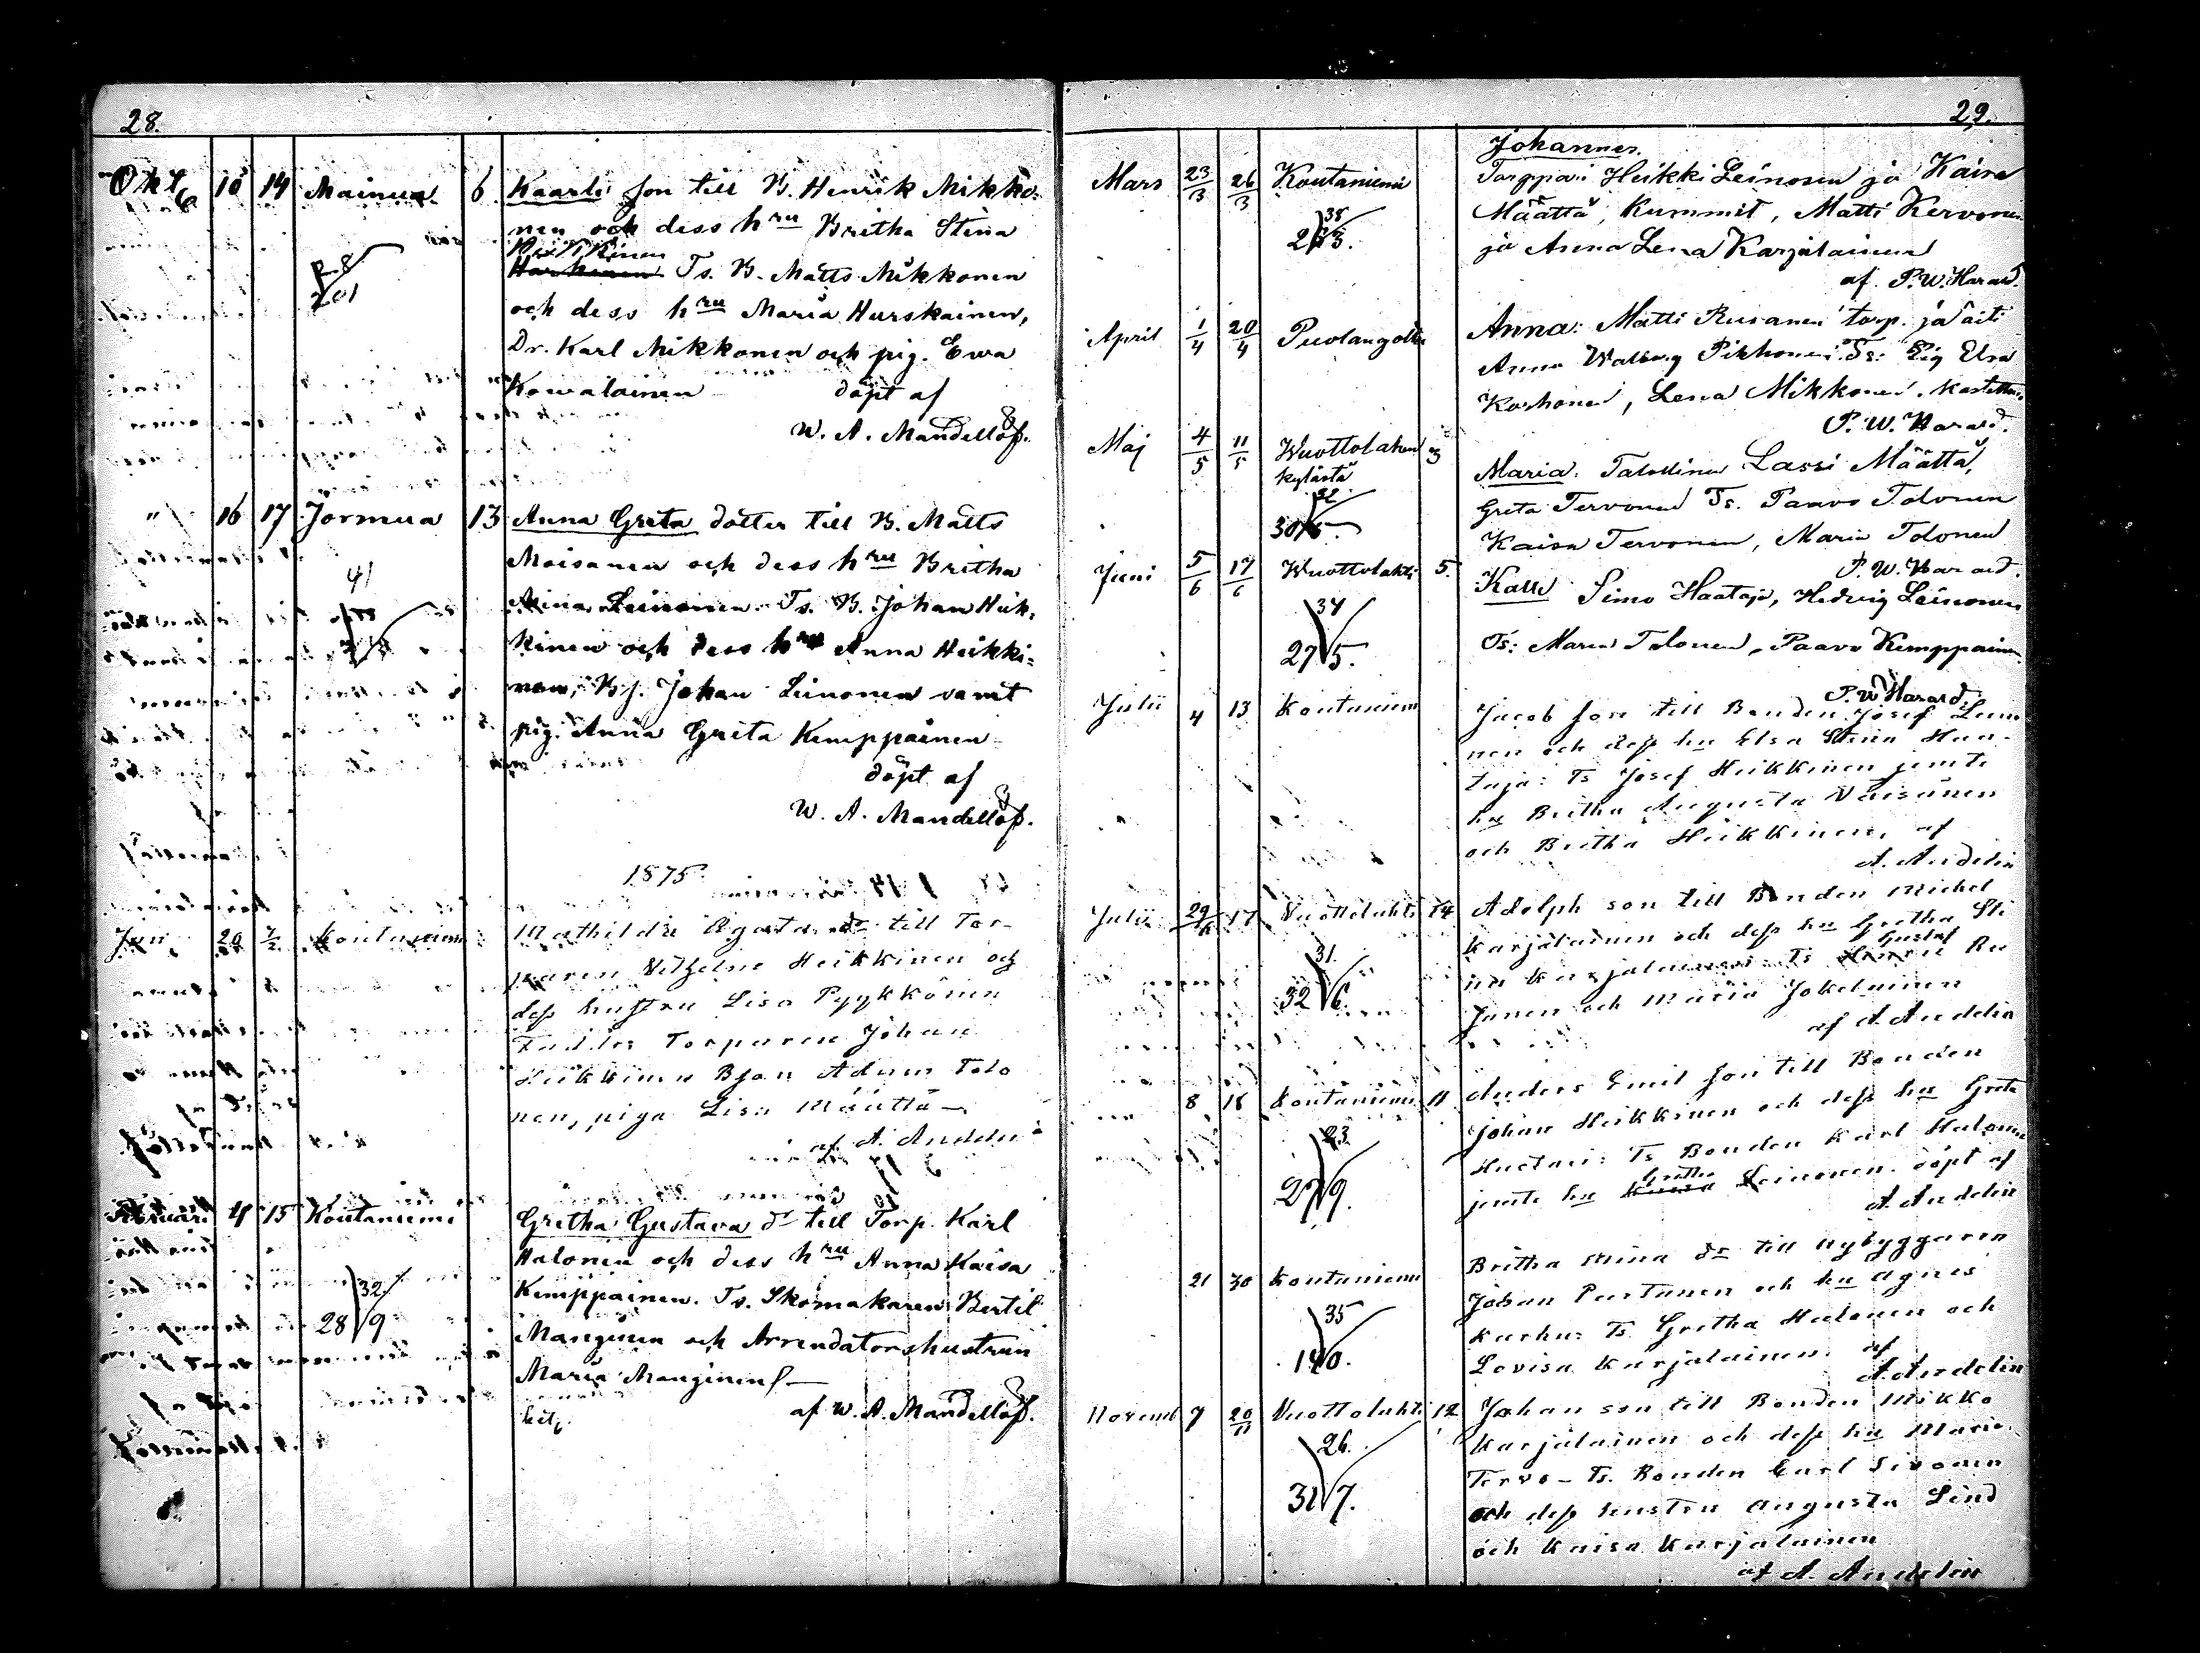 28.
Okt 10 14 Mainua 6. Kaarle son till B. Henrik Mikko-
nen och dess hru Britha Stina
Ts. B. Matts Mikkonen
201
och dess hru Maria Hurskainen,
Dr. Karl Mikkonen och pig. Ewa
Kowalainen döpt af
W. A. Mandellöf.
" 16 17 Jormua 13 Anna Greta dotter till B. Matts
Moisanen och dess hru Britha
41
Leinonen. Ts. B. Johan Heik-
kinen och dess hru Anna Heikki-
nen, Johan Leinonen samt
pig. Anna Greta Kemppainen
döpt af
W. A. Mandellöf.
1875
Jan. 20 Koutaniemi Mathilda Agata dr till Tor-
paren Vilhelm Heikkinen och
dess hustru Lisa Pyykkönen
Faddrar Torparen Johan
Heikkinen Bson Adam Tolo
nen, piga Lisa Määttä
af A. Andelin
Februari 4 15 Koutaniemi Gretha Gustava dr till Torp. Karl
Halonen och dess hru Anna Kaisa
32
Kemppainen. Ts. Skomakaren Bertil
28 9
Manginen och Arrendatorshustrun
Maria Manginen
af W. A. Mandellöf.
29.
Johannes.
Mars 23/3 26/3 Koutaniemi Torppari Heikki Leinosen ja Kaisa
Määttä, Kummit, Matti Kervonen
38
ja Anna Lena Karjalainen
af P. W. Harald.
April 1/4 20/4 Puolangolta Anna: Matti Rusanen torp. ja äiti
Anna Walborg Pikkonen. Ts: Pig Elsa
Korhonen, Lena Mikkonen.
P. W. Harald.
Maj 4/5 11/5 Wuottolahen 3 Maria: Talollinen Lassi Määttä,
kylästä
Greta Tervonen Ts. Paavo Tolonen
Kaisa Tervonen, Maria Tolonen
P. W. Harald.
Juni 5/6 17/6 Wuottolahti 5. Kalle Simo Haataja, Hedvig Leinonen
34
Ts: Maria Tolonen, Paavo Kemppainen
27 5.
P. W. Harald.
Julii 4 13 Koutaniemi Jacob son till Bonden Josef Leino
nen och dess hu Elsa Stina Haa-
taja: Ts Josef Heikkinen jemte
hu Britha Augusta Väisänen
och Britha Heikkinen, af
A. Andelin
Julii 29/6 17 Vuottolahti 14 Adolph son till Bonden Michel
Karjalainen och dess hu Gretha Sti
Gustaf
na Karjalainen: Ts Ru
31.
32 6.
sanen och Maria Jokelainen
af A. Andelin
8 18 Koutaniemi 11 Anders Emil son till Bonden
Johan Heikkinen och dess hu Greta
23.
Huotari: Ts Bonden Karl Halonen
Gretha
jemte hu Leinonen. döpt af
27 9.
A. Andelin
21 30 Koutaniemi Britha Stina dr till nybyggaren
Johan Partanen och hu Agnes
35
Karhu: Ts. Gretha Halonen och
Lovisa Karjalainen. af
A. Andelin
Novemb 7 20/11 Vuottolahti 12 Johan son till Bonden Mikko
Karjalainen och dess hu Maria
26.
Tervo - Ts. Bonden Carl Sivonen
31 7.
och dess hustru Augusta Lind
och Kaisa Karjalainen
af A. Andelin